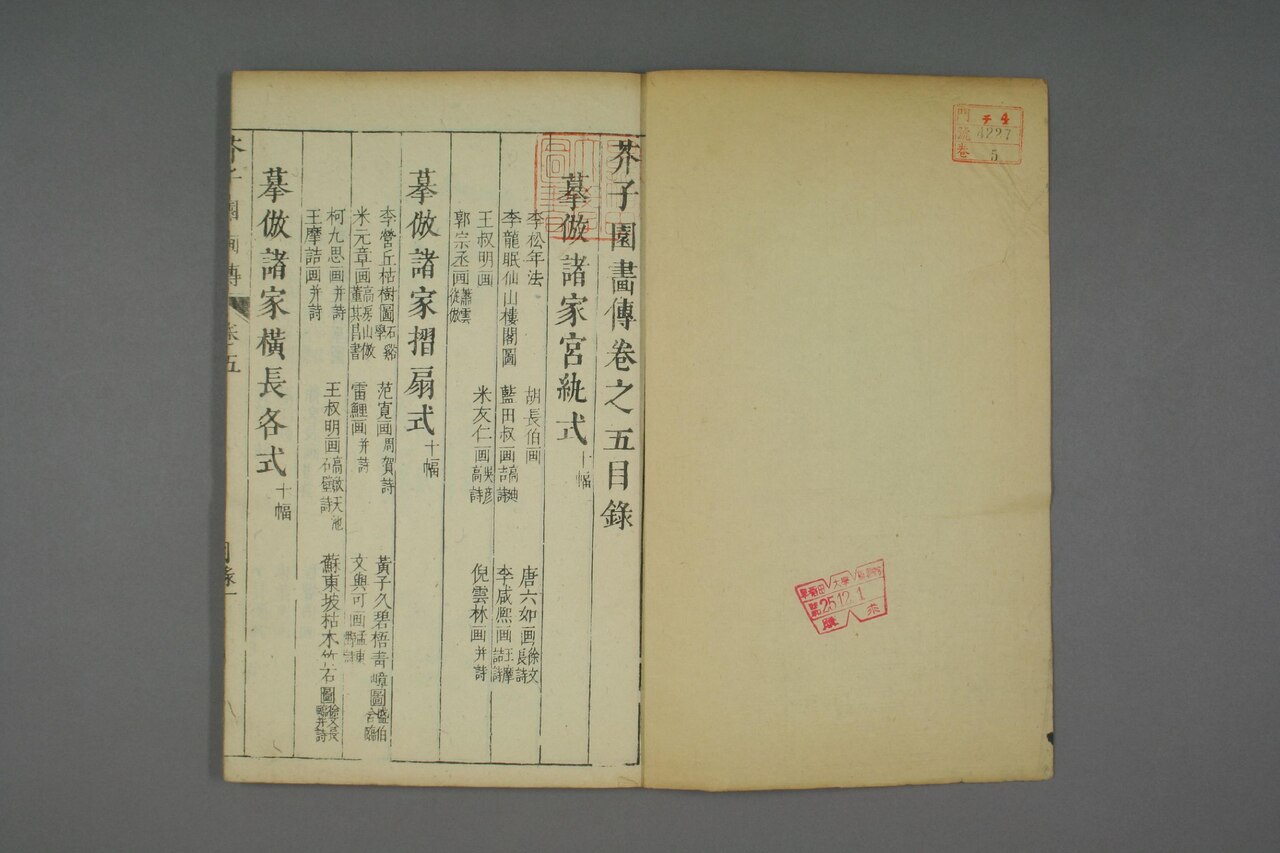 芥子園畫傳卷之五目錄
摹倣諸家宮紈式 十幅
李松年法 胡長伯画 唐六如画 徐文長詩
李龍眠仙山樓閣圖 藍田叔画 李咸熙画 王摩詰詩
王叔明画 米友仁画 倪雲林画并詩
郭宗丞画 蕭雲從倣
摹倣諸家摺扇式 十幅
李營丘枯樹圖 范寬画 周賀詩 黃子久碧梧靑嶂圖
米元章画 高房山倣 董其昌書 雷鯉画并詩 文與可画
柯九思画并詩 王叔明画 蘇東坡枯木竹石圖
王摩詰画并詩
摹倣諸家橫長各式 十幅
芥子園画傳 卷五 目錄一
門號卷
チ4
4227
5
25.12.1
購求